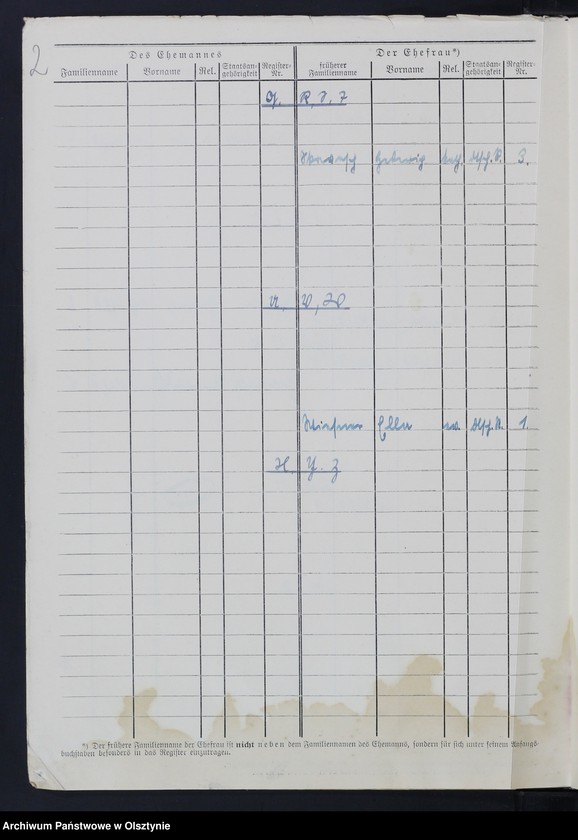 2
Des Ehemannes
Der Ehefrau*)
Familienname
Vorname
Rel.
Staatsan-
gehörigkeit
Register-
Nr.
früherer
Familienname
Vorname
Rel.
Staatsan-
gehörigkeit
Register-
Nr.
Q. R, S, T
Hedwig 3.
U. V, W
Ella 1.
X Y. Z
*) Der frühere Familienname der Ehefrau ist nicht neben dem Familiennamen des Ehemanns, sondern für sich unter seinem Anfangs-
buchstaben besonders in das Register einzutragen.
Archiwum Państwowe w Olsztynie